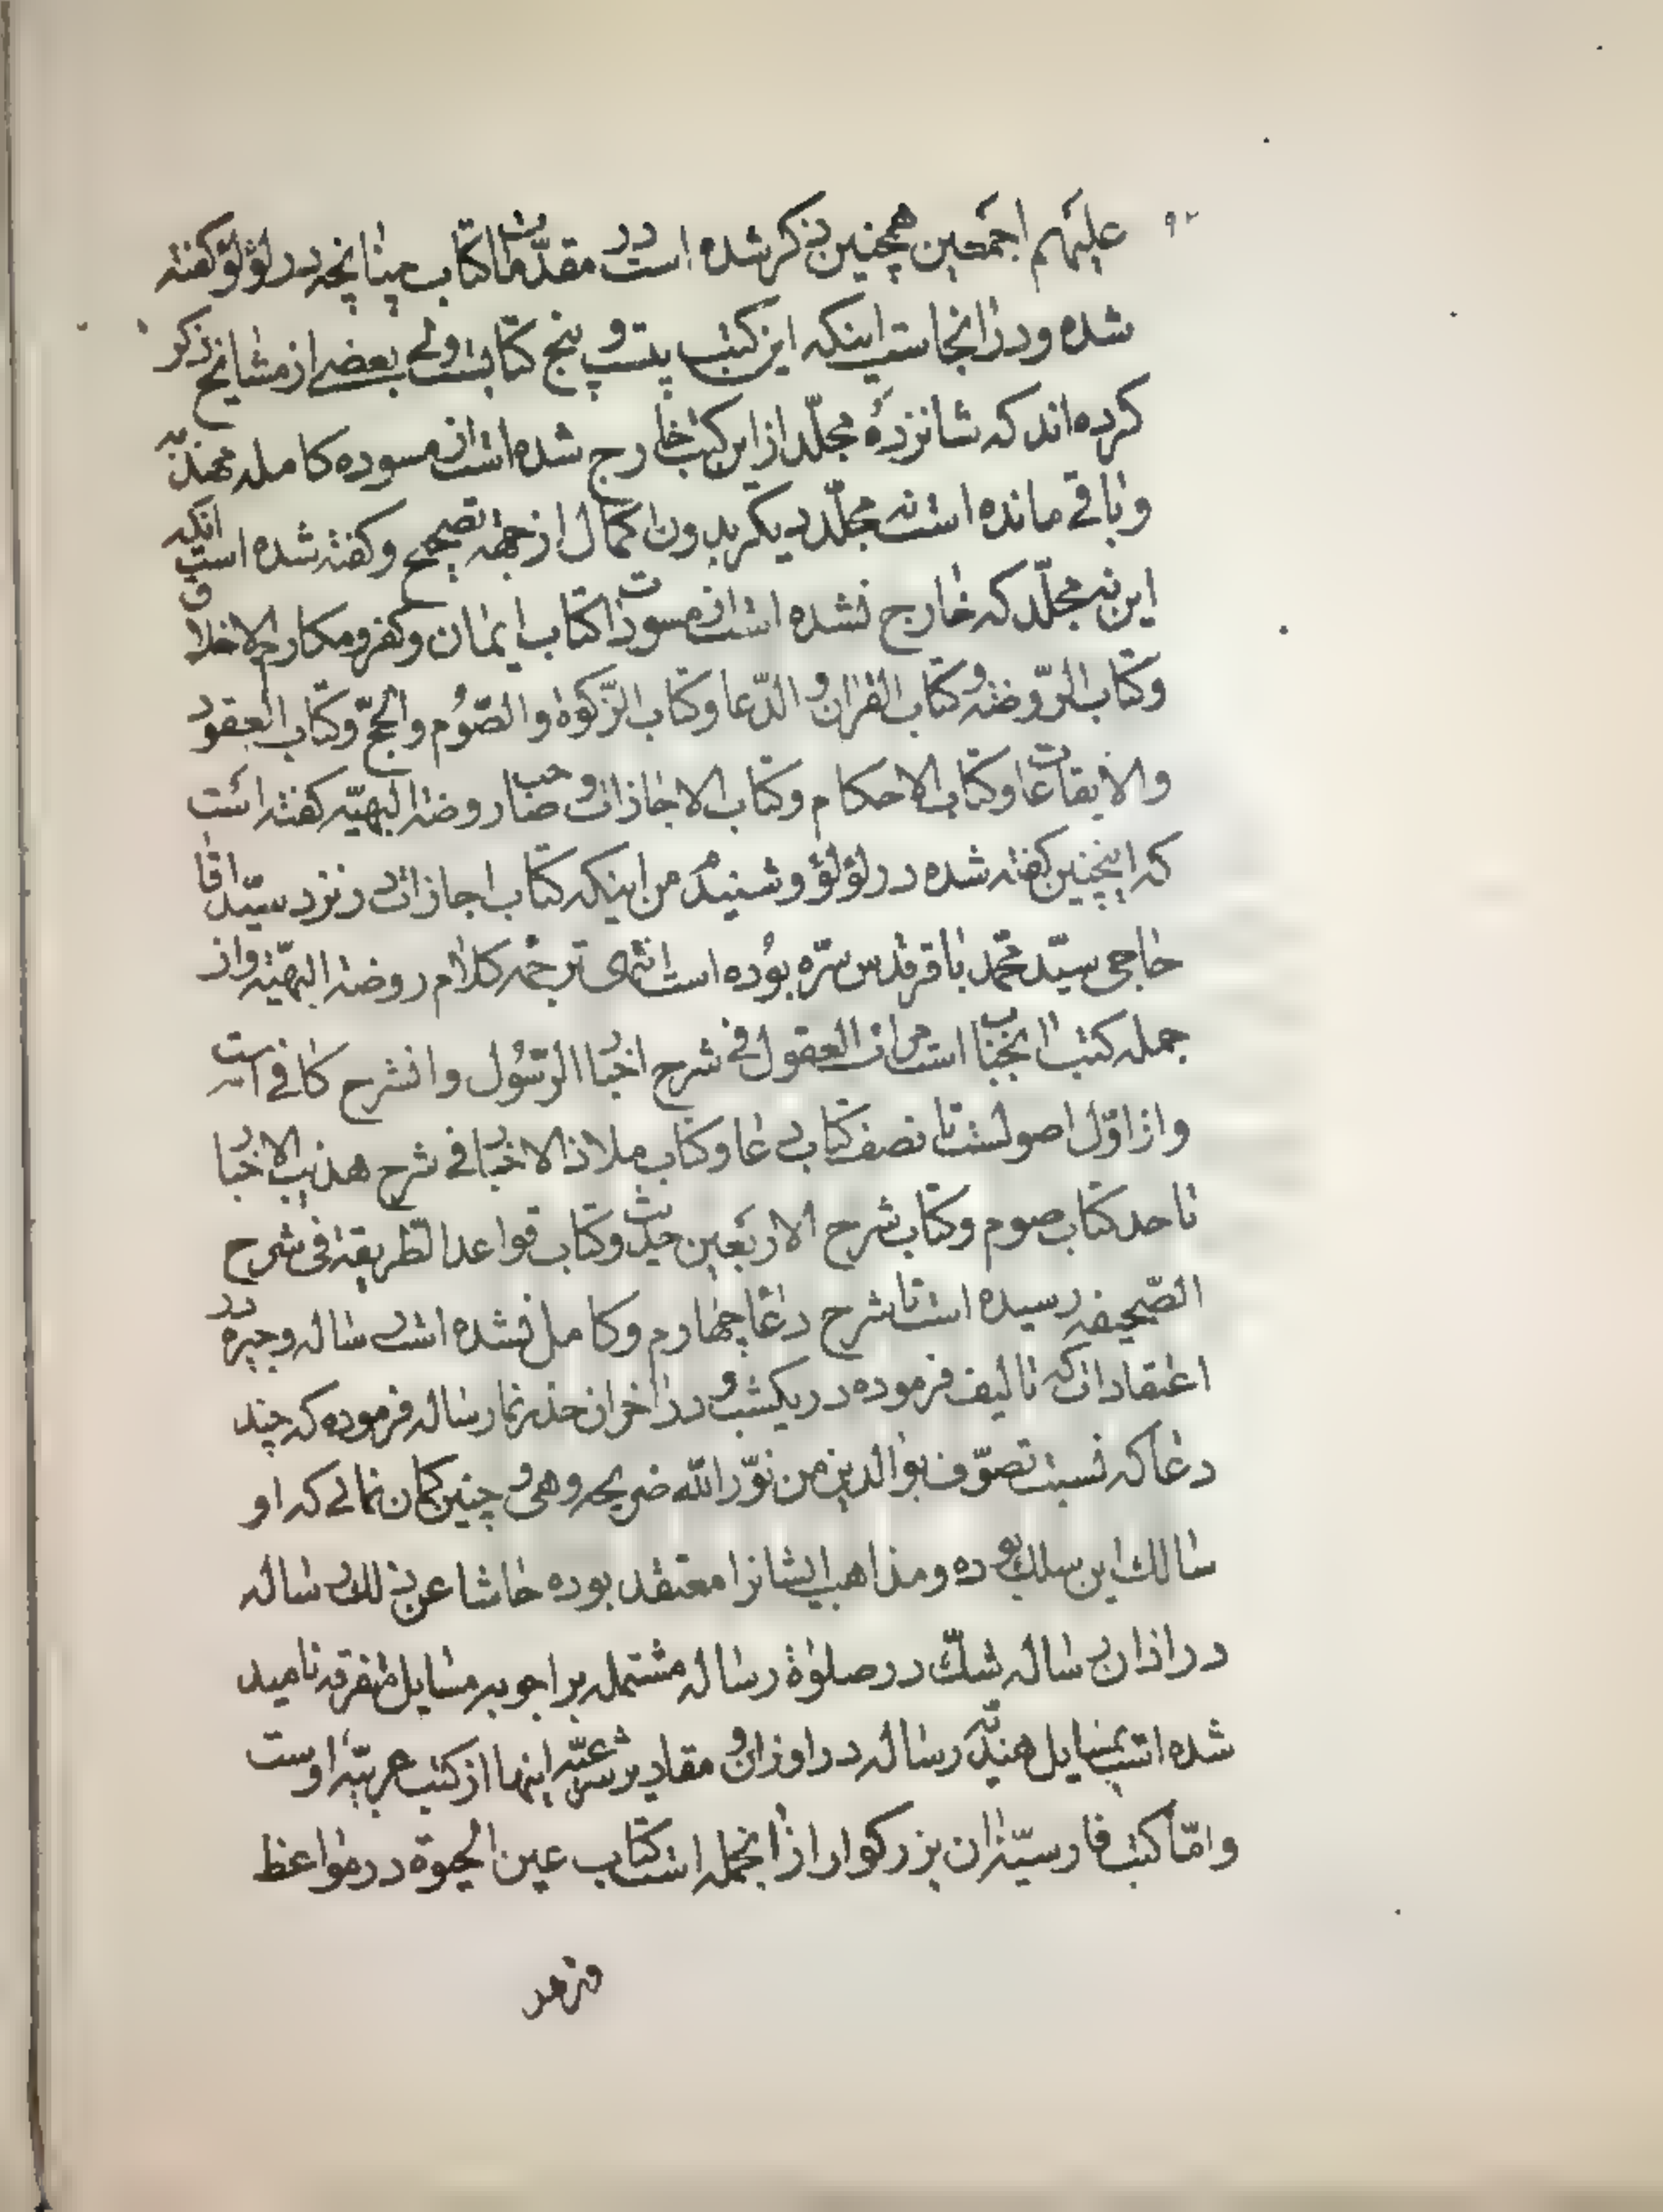 علیهم اجمعین همچنین ذکر شده است در مقدّمات کتاب چنانچه در لؤلؤ کفته
شده و در انجاست اینکه این کتب بیست و پنج کتابست ولی بعضی از مشایخ ذکر
کرده‌اند که شانزده مجلّد از این کتب خارج شده است از مسوده کامله مهذبه
و باقی مانده است نه مجلّد دیکر بدون اکمال از جهة تصحیح و کفته شده است انکه
این نه مجلّد که خارج نشده است از مسودات کتاب ایمان و کفر و مکارم الاخلاق
و کتاب الرّوضه و کتاب القران و الدّعا و کتاب الزّکوة و الصّوم و الحجّ و کتاب العقود
و الایقاعات و کتاب الاحکام و کتاب الاجازات و صاحب روضة البهیّه کفته است
که اینچنین کفته شده در لؤلؤ و شنیدم من اینکه کتاب اجازات در نزد سیّد اقا
حاجی سیّد محمّد باقر قدس سرّه بوده است انتهی ترجمه کلام روضة البهیّه و از
جمله کتب انجناب است مرات العقول فی شرح اخبار الرّسول و انشرح کافی است
و از اوّل اصولست تا نصف کتاب دعا و کتاب ملاذ الاخبار فی شرح تهذیب الاخبار
تا حد کتاب صوم و کتاب شرح الاربعین حدیث و کتاب قواعد الطّریقة فی شرح
الصّحیفه رسیده است تا شرح دعا چهارم و کامل نشده است رساله وجیزه در
اعتقادات که تالیف فرموده در یکشب و در اخر ان رساله فرموده که چند
دعا که نسبت تصوّف بوالدین من نوّر الله ضریحه دهی و چنین کمان نمائی که او
سالک این سلک بوده و مذاهب ایشانرا معتقد بوده حاشا عن ذلک رساله
در اذان رساله شکّ در صلوة رساله مشتمله بر اجوبه مسایل متفرقه نامید
شده است بمسایل هندیّه رساله در اوزان و مقادیر شرعیّه اینها از کتب عربیّه اوست
و امّا کتب فارسیّه ان بزرکوار از انجمله است کتاب عین الحیوة در مواعظ